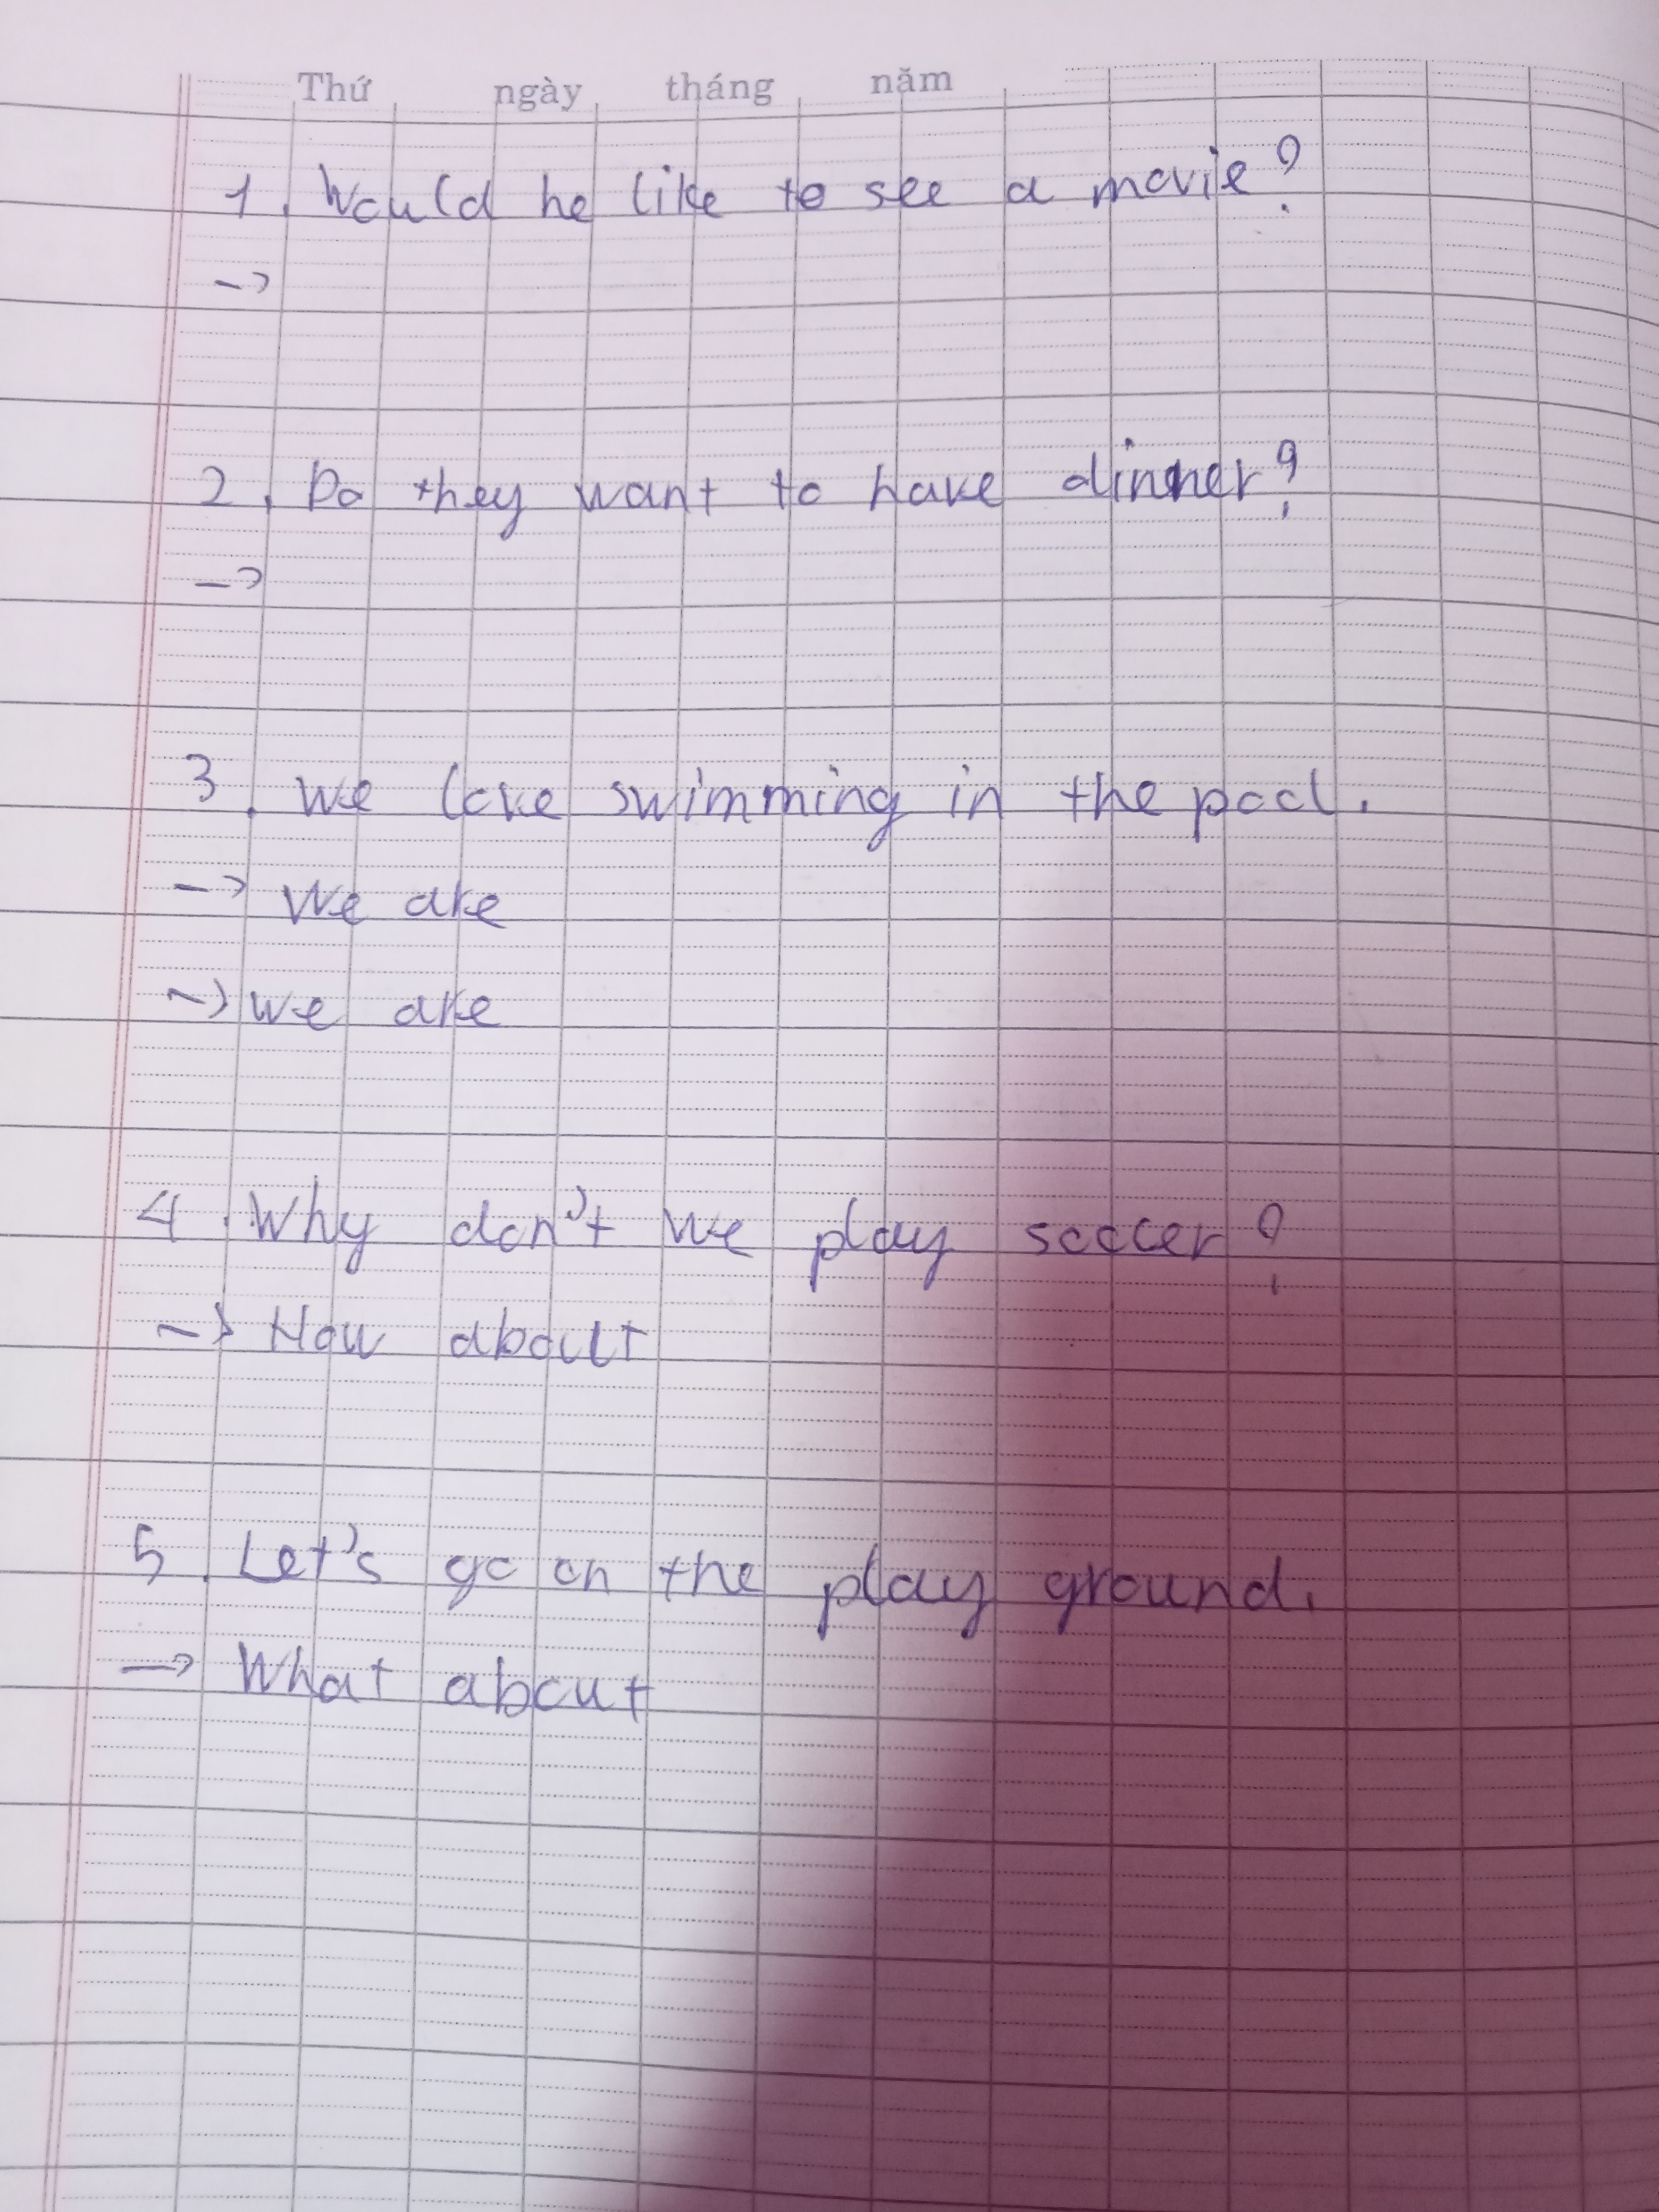 Thứ ngày tháng năm
1. Would he like to see a movie?
->
2. Do they want to have dinner?
->
3. We love swimming in the pool.
-> We are
-> We are
4. Why don't we play soccer?
-> How about
5. Let's go on the play ground.
-> What about